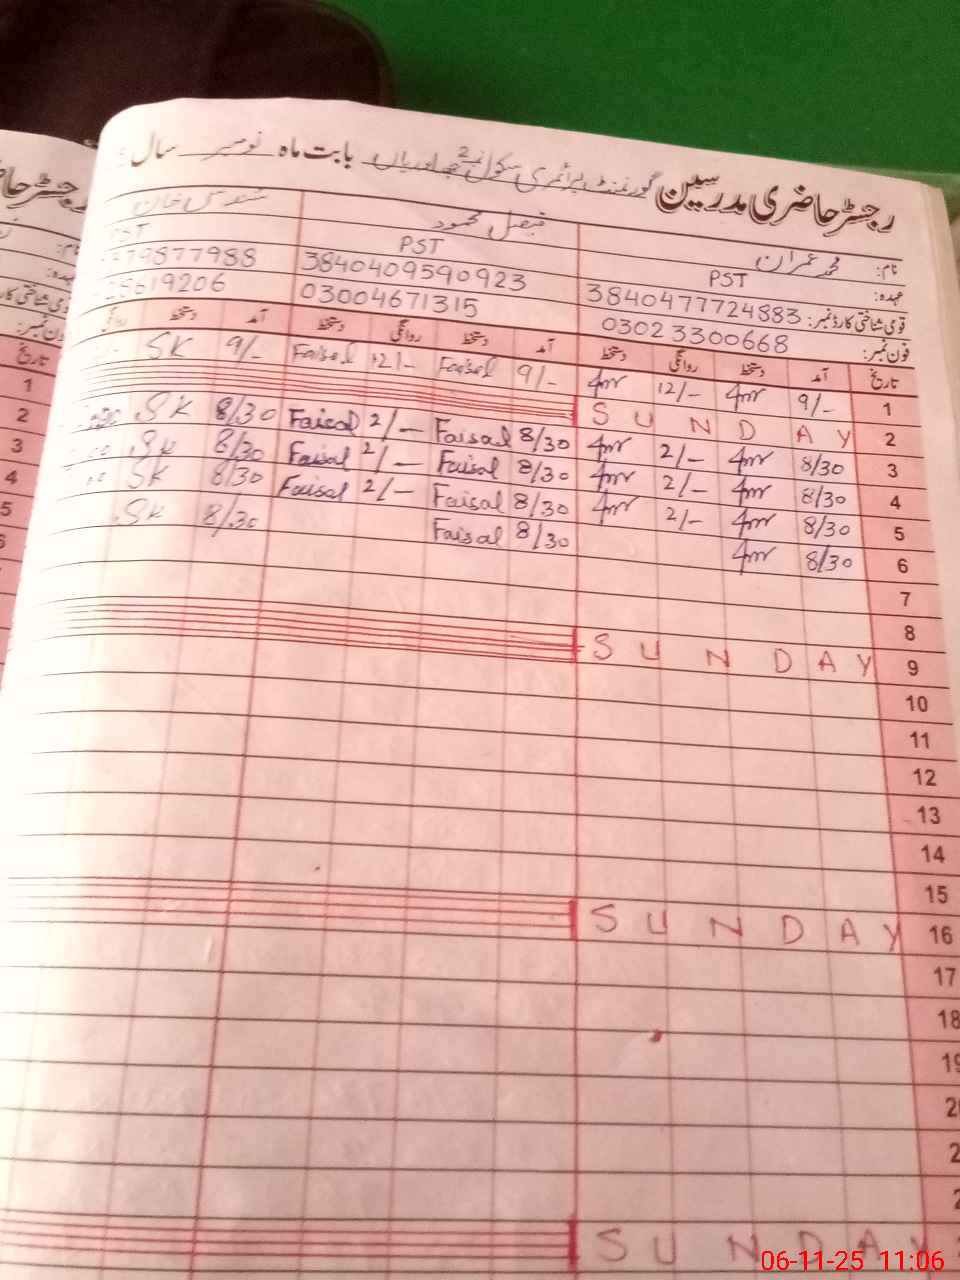 رجسٹر حاضری مدرسین گورنمنٹ پرائمری سکول نمبر 2 بابت ماہ نومبر سال
نام: محمد عمران فیصل محمود خان
عہدہ: PST PST PST
قومی شناختی کارڈ نمبر: 3840477724883 3840409590923 79877988
فون نمبر: 03023300668 03004671315 19206
تاریخ آمد دستخط روانگی دستخط آمد دستخط روانگی دستخط آمد دستخط روانگی
1 9/- 12/- 9/- Faisal 12/- Faisal 9/- SK
2 SUNDAY
3 8/30 2/- 8/30 Faisal 2/- Faisal 8/30 SK
4 8/30 2/- 8/30 Faisal 2/- Faisal 8/30 SK
5 8/30 2/- 8/30 Faisal 2/- Faisal 8/30 SK
6 8/30 8/30 Faisal 8/30 SK
7
8
9 SUNDAY
10
11
12
13
14
15
16 SUNDAY
17
18
19
SUNDAY
رجسٹر
نام:
عہدہ:
تاریخ
1
2
3
4
5
06-11-25 11:06